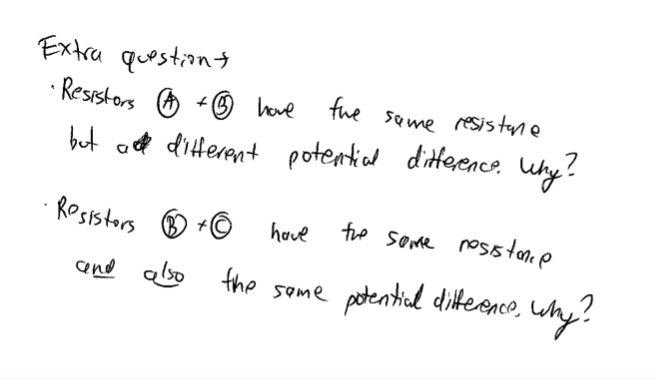 Extra questions
· Resistors Ⓐ + Ⓑ have the same resistance
but a different potential difference. Why?
· Resistors Ⓑ + Ⓒ have the same resistance
and also the same potential difference, why?